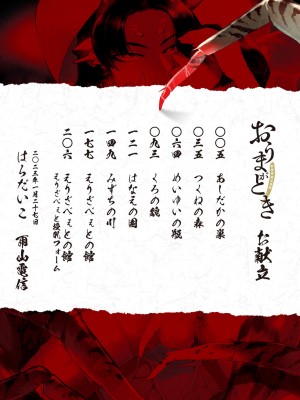 おりまがどき お献立
〇〇五 あしだかの巣
〇三五 つくねの森
〇六四 めいゆいの
〇九三 くろの貌
一二一 はなえの園
一四九 みずちの川
一七七 えりざべぇとの館
二〇六 えりざべぇとの館
えりざべぇと授乳フォーム
二〇二三年一月二十七日
はらだいこ 雨山電信